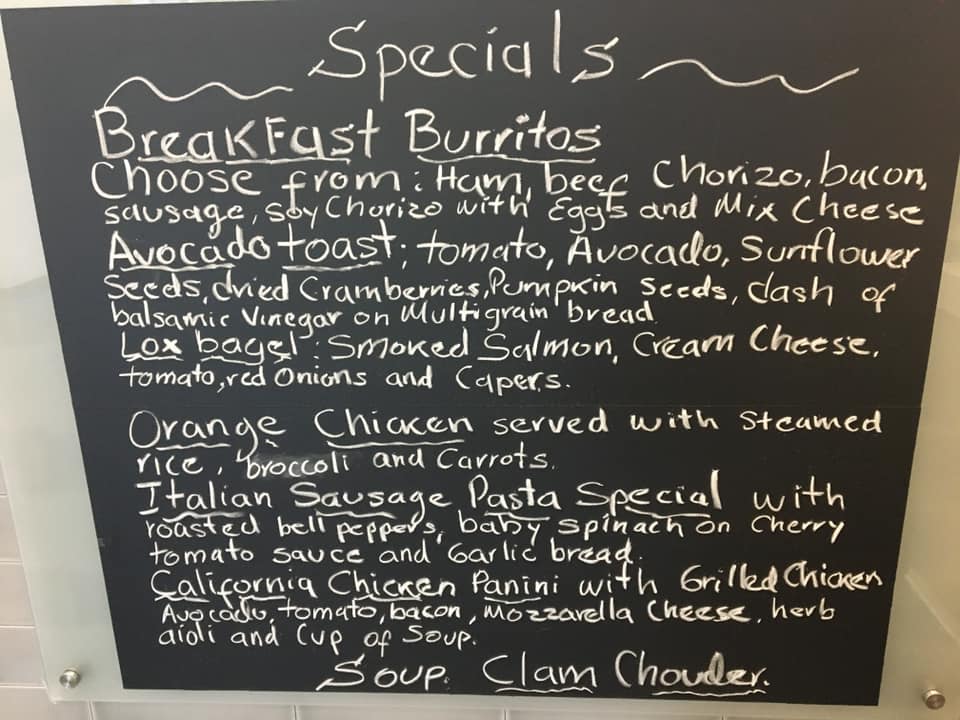 Specials
BreakFast Burritos
Choose from: Ham, beef Chorizo, bacon,
sausage, soy Chorizo with Eggts and Mix Cheese
Avocado toast: tomato, Avocado, Sunflower
Seeds, dried Cramberries, Pumpkin Seeds, dash of
balsamic Vinegar on Multigrain bread
Lox bagel: Smoked Salmon, Cream Cheese,
tomato, red Onions and Capers.
Orange Chicken served with Steamed
rice, broccoli and Carrots.
Italian Sausage Pasta Special with
roasted bell peppers, baby spinach on Cherry
tomato sauce and Garlic bread.
California Chicken Panini with Grilled Chicken
Avocado, tomato, bacon, Mozzarella Cheese, herb
aioli and Cup of Soup.
Soup: Clam Chouder.